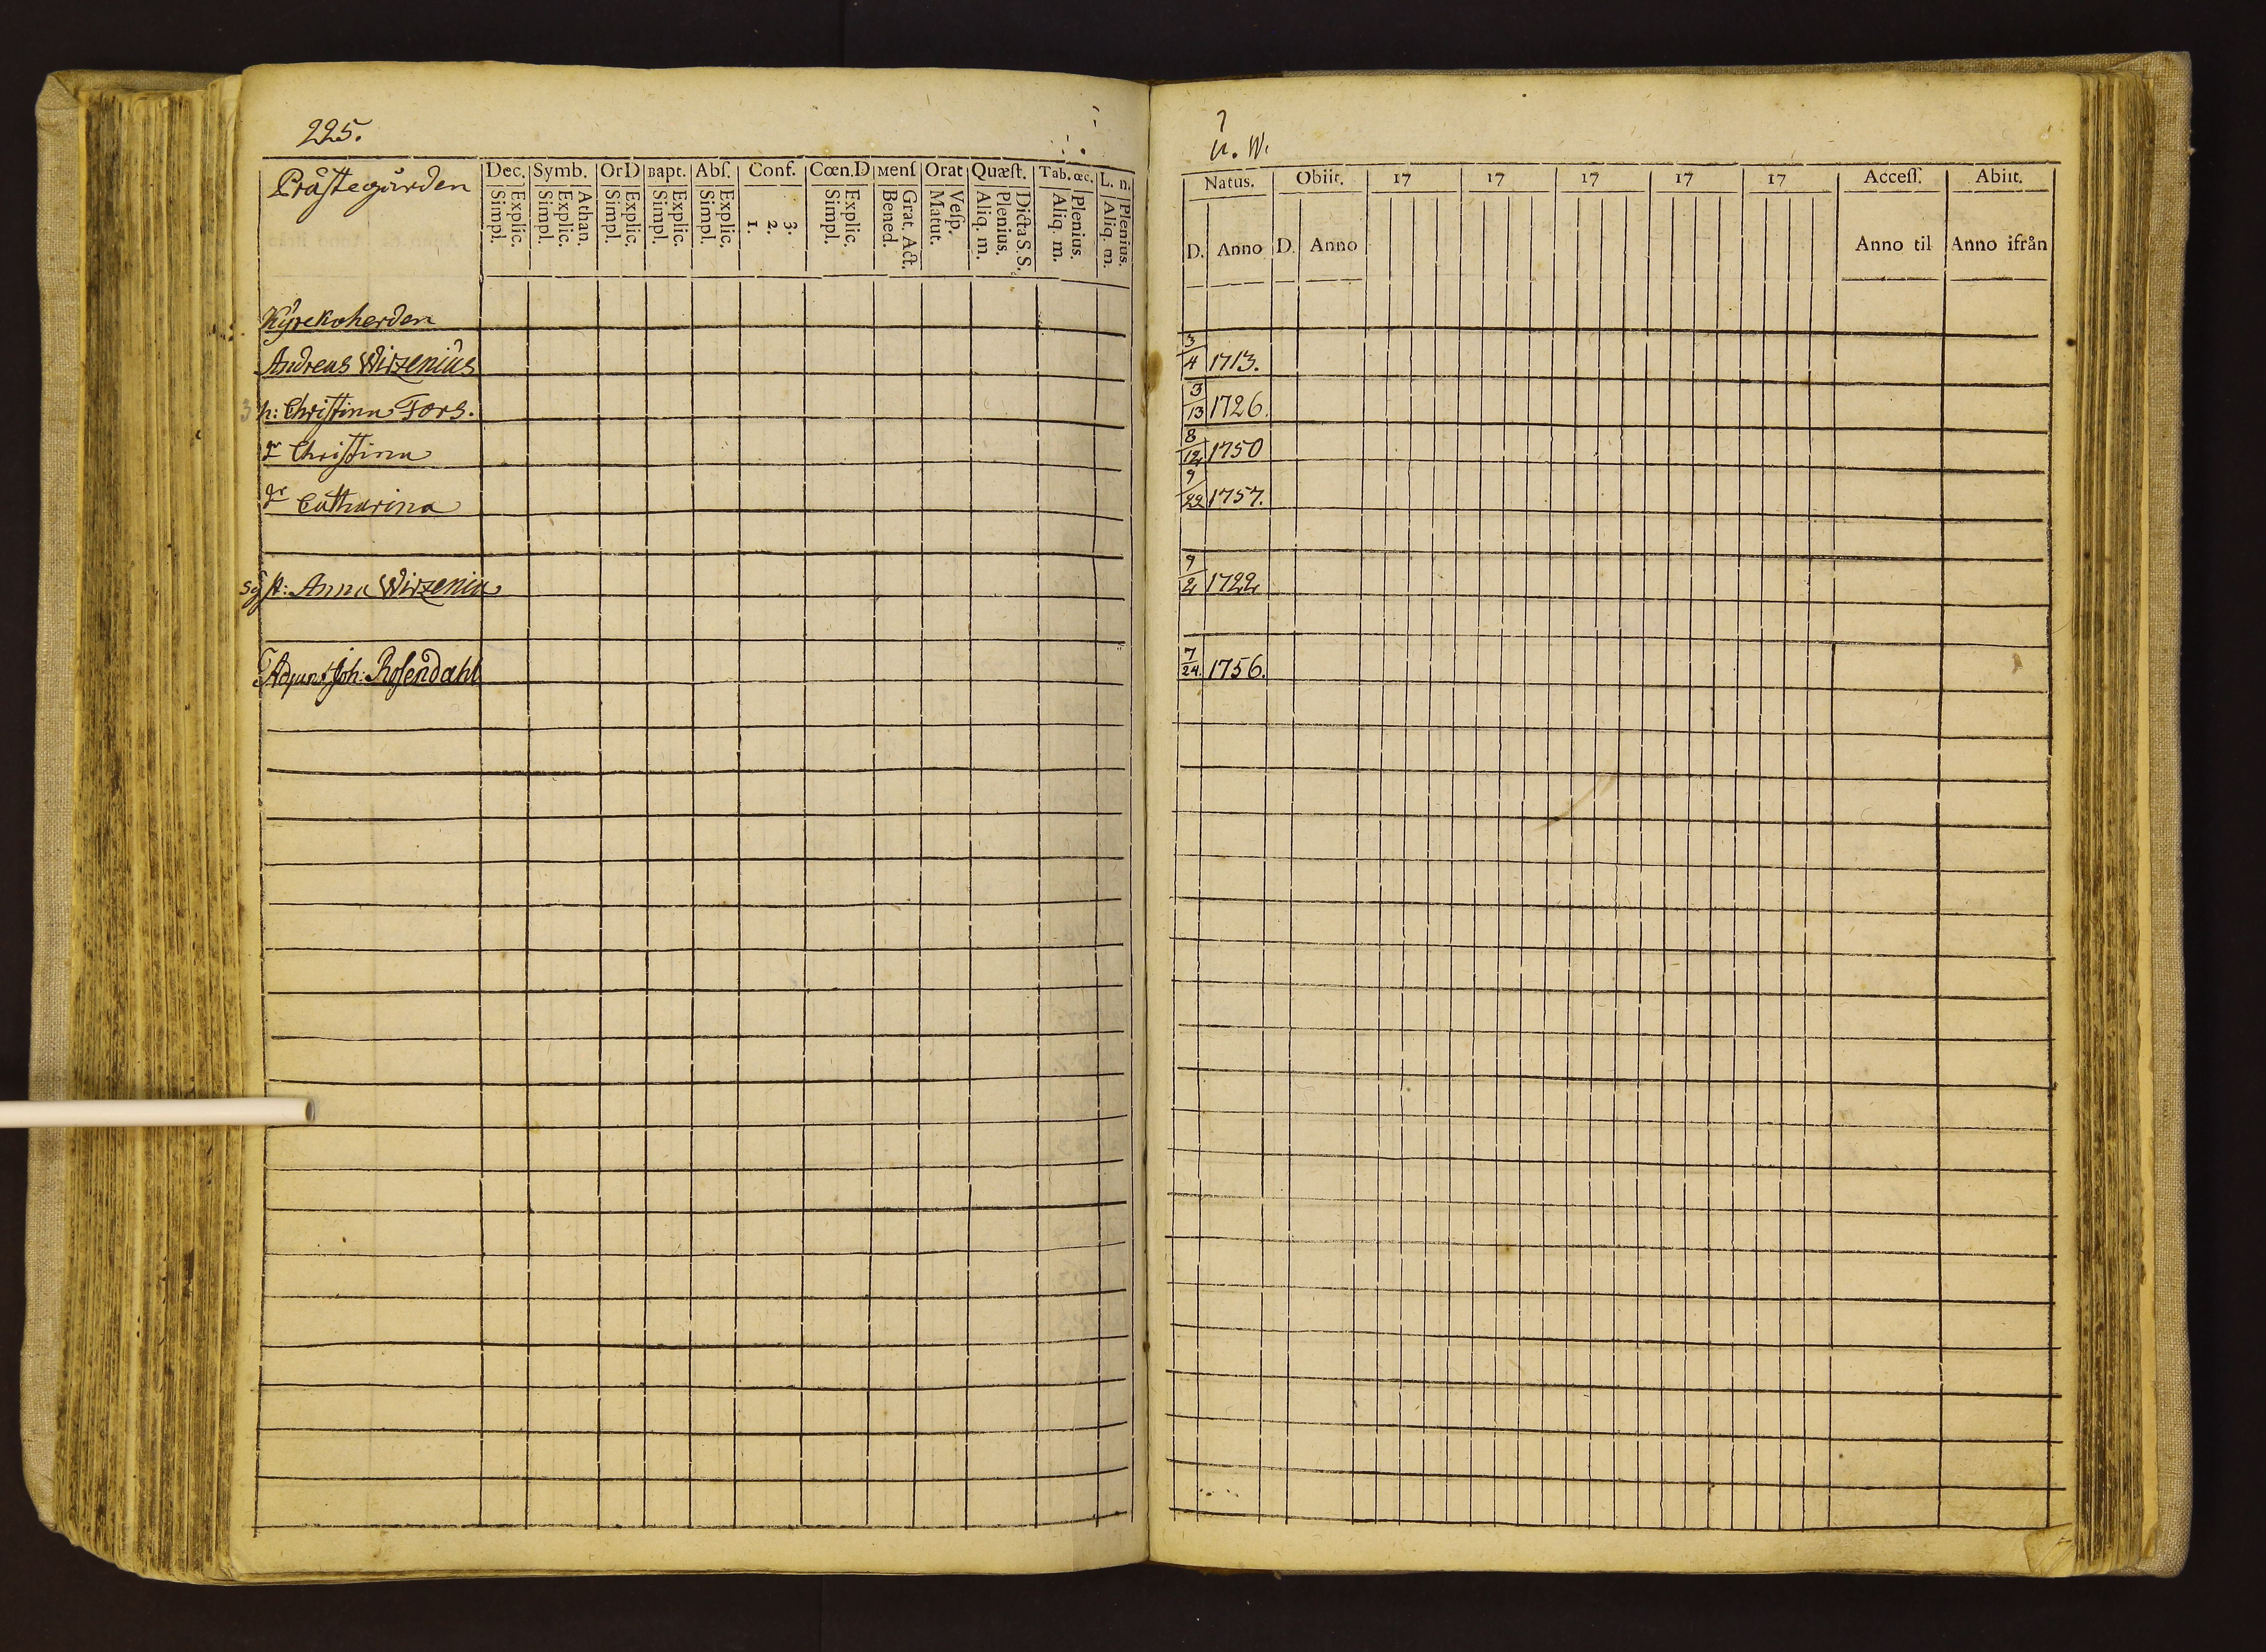 225.
Prästegården
Dec. Symb. Or D Bapt. Abſ. Conf. Cœn. D Menſ Orat Quæſt. Tab. œc. L. n.
Explic. Simpl. Athan. Explic. Simpl. Explic. Simpl. Explic. Simpl. Explic. Simpl. 3. 2. 1. Explic. Simpl. Grat. Act. Bened. Veſp. Matut. Dicta S. S. Plenius. Aliq. m. Plenius. Aliq. m. Plenius. Aliq. m.
Kyrekoherden
Andreas Wirzenius
3 h: Christina Fors.
Christina
Catharina
Anna Wirzenia
Adjunct Joh: Rosendahl
u. W.
Natus. Obiit. 17 17 17 17 17 Acceſſ. Abiit.
D. Anno D. Anno Anno til Anno ifrån
3/4 1713.
3/13 1726.
8/12 1750
9/22 1757.
9/2 1722
7/24. 1756.